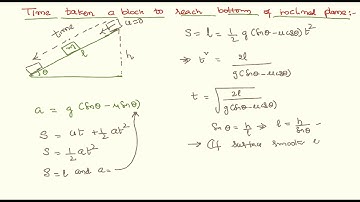 Time taken a block to reach bottom of inclined plane:-
u=0
time
m
l
h
θ
a = g (sinθ-μcosθ)
S = ut + ½ at²
S = ½ at²
S = l and a =
S = l = ½ g (sinθ-μcosθ) t²
⇒ t² = 2l / g(sinθ-μcosθ)
t = √(2l / g(sinθ-μcosθ))
sinθ = h/l ⇒ l = h/sinθ -
→ (If surface smooth